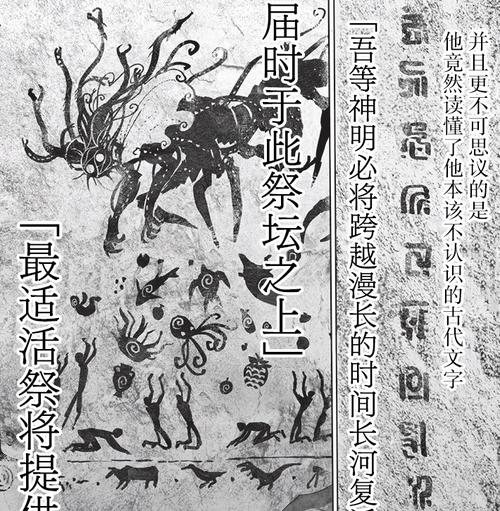 并且更不可思议的是
他竟然读懂了他本该不认识的古代文字
「吾等神明必将跨越漫长的时间长河复活
届时于此祭坛之上」
「最适活祭将提供